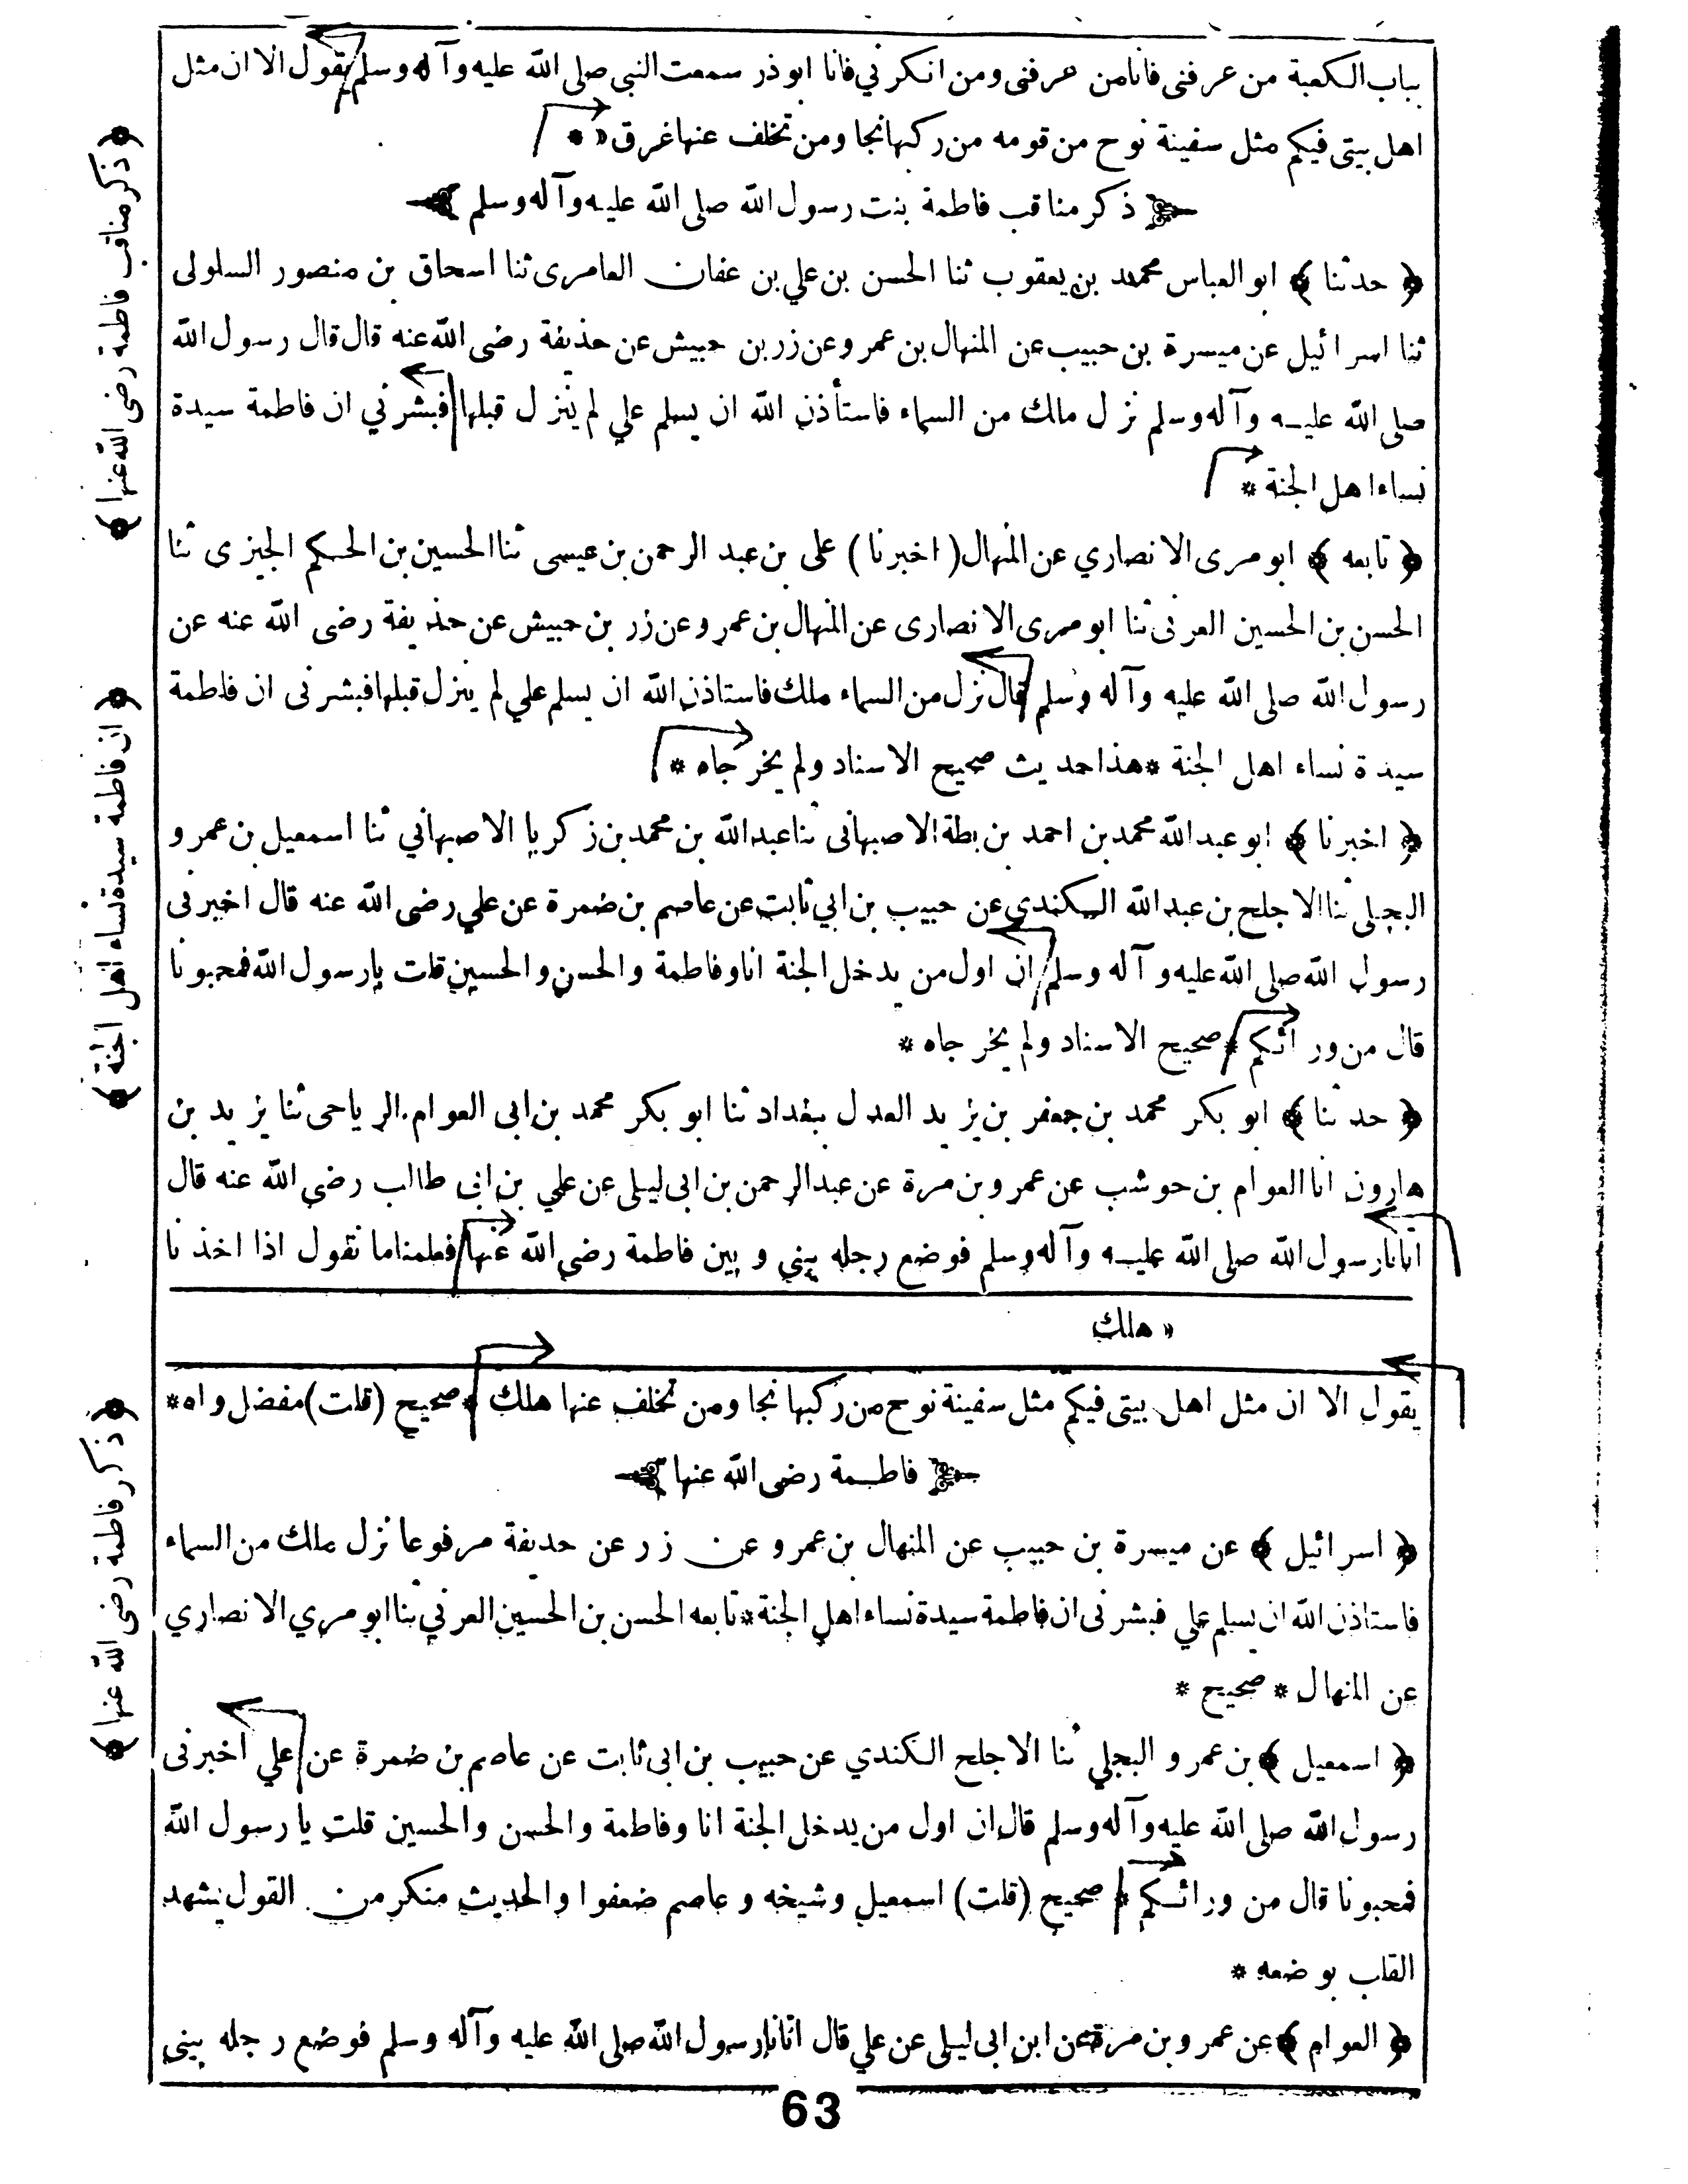 بباب الكعبة من عرفنى فانا من عرفنى ومن انكرني فانا ابوذر سمعت النبي صلى الله عليه وآله وسلم يقول الا ان مثل
اهل بيتى فيكم مثل سفينة نوح من قومه من ركبها نجا ومن تخلف عنها غرق « *
ذكر مناقب فاطمة بنت رسول الله صلى الله عليه وآله وسلم
﴿ حدثنا ﴾ ابو العباس محمد بن يعقوب ثنا الحسن بن علي بن عفان العامرى ثنا اسحاق بن منصور السلولى
ثنا اسرائيل عن ميسرة بن حبيب عن المنهال بن عمرو عن زر بن حبيش عن حذيفة رضى الله عنه قال قال رسول الله
صلى الله عليه وآله وسلم نزل مالك من السماء فاستأذن الله ان يسلم علي لم ينزل قبلها فبشرني ان فاطمة سيدة
نساء اهل الجنة *
﴿ تابعه ﴾ ابو مرى الانصاري عن المنهال ( اخبرنا ) على بن عبد الرحمن بن عيسى ثنا الحسين بن الحكم الجيزى ثنا
الحسن بن الحسين العرنى ثنا ابو مرى الانصارى عن المنهال بن عمرو عن زر بن حبيش عن حذيفة رضى الله عنه عن
رسول الله صلى الله عليه وآله وسلم قال نزل من السماء ملك فاستاذن الله ان يسلم علي لم ينزل قبلها فبشرنى ان فاطمة
سيدة نساء اهل الجنة * هذا حديث صحيح الاسناد ولم يخرجاه *
﴿ اخبرنا ﴾ ابو عبد الله محمد بن احمد بن بطة الاصبهانى ثنا عبد الله بن محمد بن زكريا الاصبهاني ثنا اسمعيل بن عمرو
البجلى ثنا الاجلح بن عبد الله الكندي عن حبيب بن ابي ثابت عن عاصم بن ضمرة عن علي رضى الله عنه قال اخبرنى
رسول الله صلى الله عليه وآله وسلم ان اول من يدخل الجنة انا وفاطمة والحسن والحسين قلت يا رسول الله فمحبونا
قال من ورائكم * صحيح الاسناد ولم يخرجاه *
﴿ حدثنا ﴾ ابو بكر محمد بن جعفر بن يزيد العدل ببغداد ثنا ابو بكر محمد بن ابى العوام الرياحى ثنا يزيد بن
هارون انا العوام بن حوشب عن عمرو بن مرة عن عبد الرحمن بن ابى ليلى عن علي بن ابى طالب رضى الله عنه قال
اتانا رسول الله صلى الله عليه وآله وسلم فوضع رجله بيني وبين فاطمة رضي الله عنها فعلمنا ما نقول اذا اخذنا
« هلك
يقول الا ان مثل اهل بيتى فيكم مثل سفينة نوح من ركبها نجا ومن تخلف عنها هلك * صحيح (قلت) مفضل واه *
فاطمة رضى الله عنها
﴿ اسرائيل ﴾ عن ميسرة بن حبيب عن المنهال بن عمرو عن زر عن حذيفة مرفوعا نزل ملك من السماء
فاستاذن الله ان يسلم علي فبشرنى ان فاطمة سيدة نساء اهل الجنة * تابعه الحسن بن الحسين العرني ثنا ابو مري الانصاري
عن المنهال * صحيح *
﴿ اسمعيل ﴾ بن عمرو البجلي ثنا الاجلح الكندي عن حبيب بن ابى ثابت عن عاصم بن ضمرة عن علي اخبرنى
رسول الله صلى الله عليه وآله وسلم قال ان اول من يدخل الجنة انا وفاطمة والحسن والحسين قلت يا رسول الله
فمحبونا قال من ورائكم * صحيح (قلت) اسمعيل وشيخه وعاصم ضعفوا والحديث منكر من القول يشهد
القلب بوضعه *
﴿ العوام ﴾ عن عمرو بن مرة عن ابن ابى ليلى عن علي قال اتانا رسول الله صلى الله عليه وآله وسلم فوضع رجله بينى
63
﴿ ذكر مناقب فاطمة رضى الله عنها ﴾
﴿ ان فاطمة سيدة نساء اهل الجنة ﴾
﴿ ذكر فاطمة رضى الله عنها ﴾